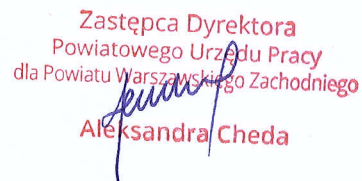 Zastępca Dyrektora
Powiatowego Urzędu Pracy
dla Powiatu Warszawskiego Zachodniego
Aleksandra Cheda